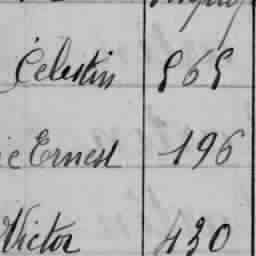 Célestin 565
ie Ernest 196
Victor 430